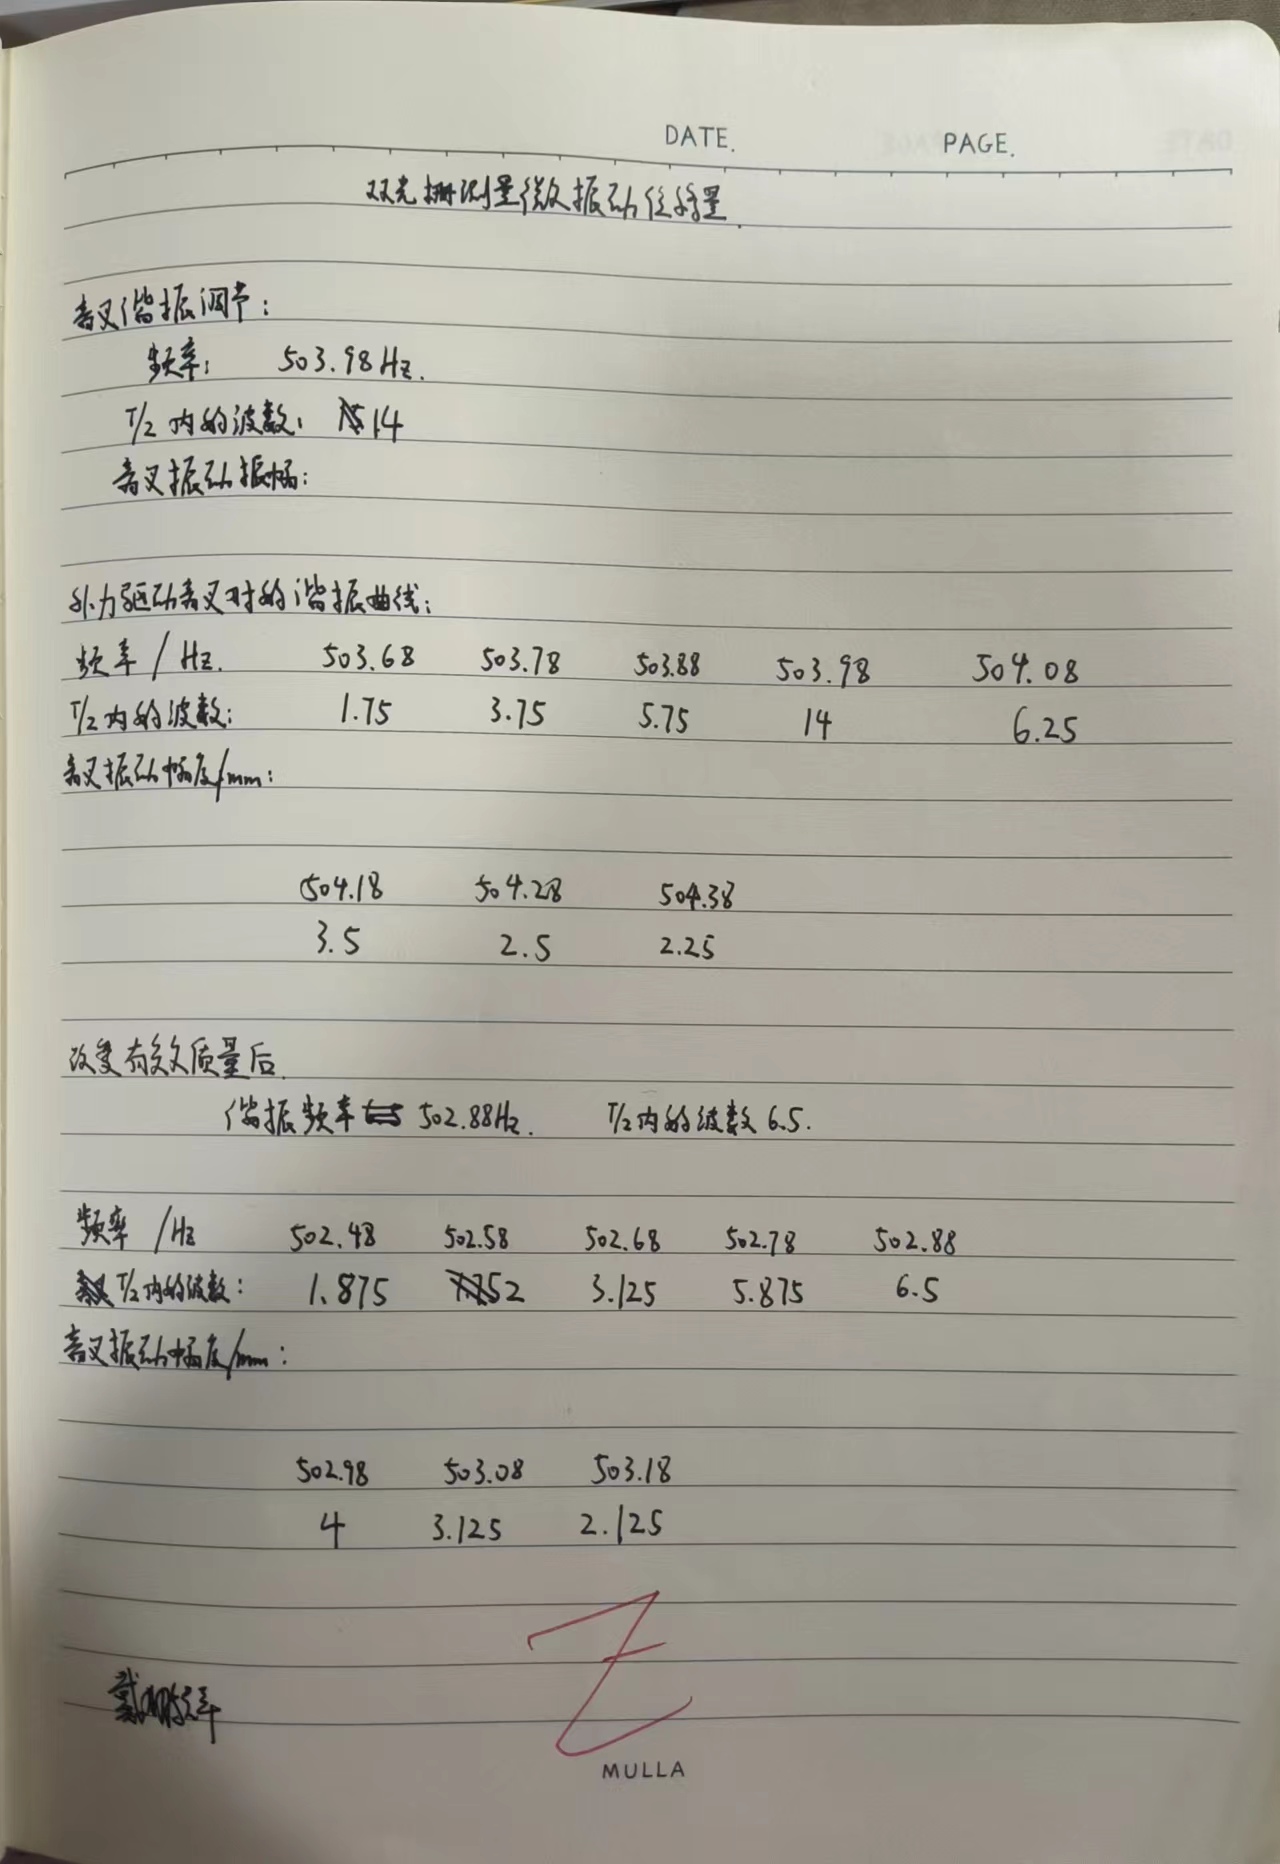 DATE. PAGE.
双光栅测量微振动位移量
音叉谐振调节:
频率: 503.98Hz.
T/2 内的波数: 14
音叉振动振幅:
外力驱动音叉时的谐振曲线:
频率/Hz. 503.68 503.78 503.88 503.98 504.08
T/2内的波数: 1.75 3.75 5.75 14 6.25
音叉振动幅度/mm:
504.18 504.28 504.38
3.5 2.5 2.25
改变有效质量后.
谐振频率 502.88Hz. T/2内的波数 6.5.
频率 /Hz 502.48 502.58 502.68 502.78 502.88
T/2内的波数: 1.875 2 3.125 5.875 6.5
音叉振动幅度/mm:
502.98 503.08 503.18
4 3.125 2.125
MULLA